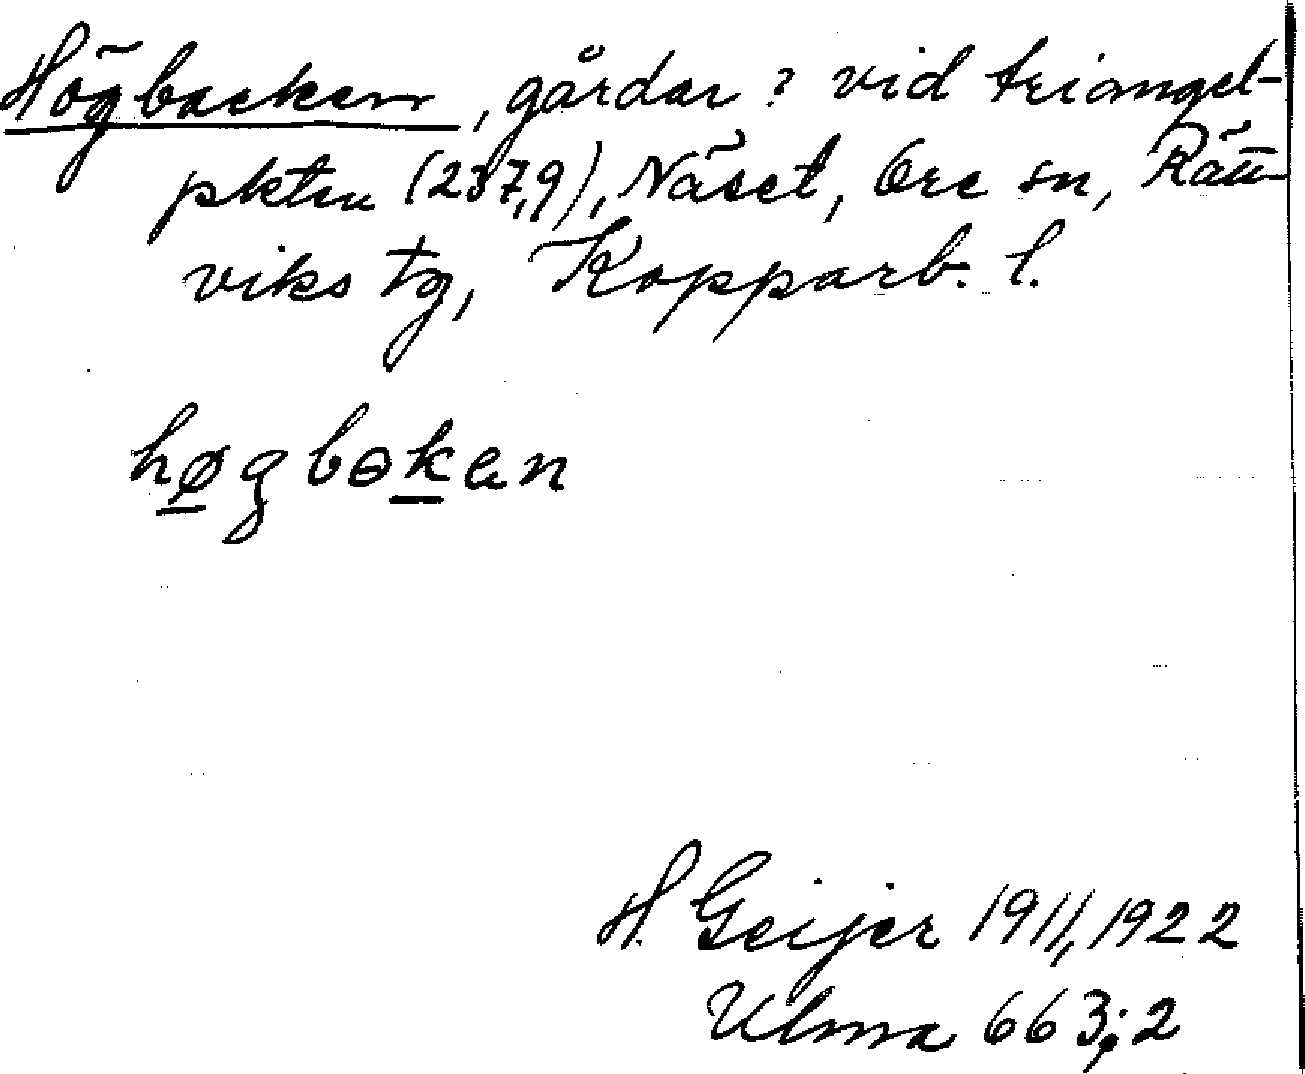 Högbacken, gårdar? vid triangel-
pkten (237,9), Näset, Ore sn, Rätt-
viks tg, Kopparb. l.
høgbɵkɐn
H. Geijer 1911, 1922
Ulma 663:2